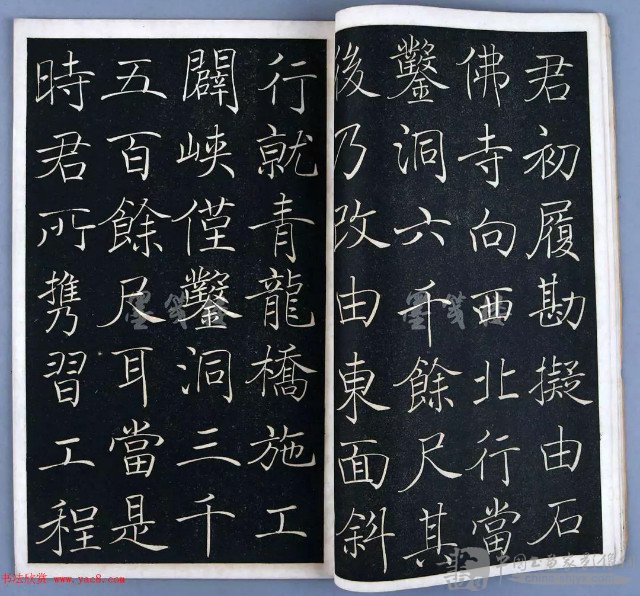 君初履勘擬由石
佛寺向西北行當
鑿洞六千餘尺其
後乃改由東面斜
行就青龍橋施工
闢峽僅鑿洞三千
五百餘尺耳當是
時君所携習工程
书法欣赏 www.yac8.com